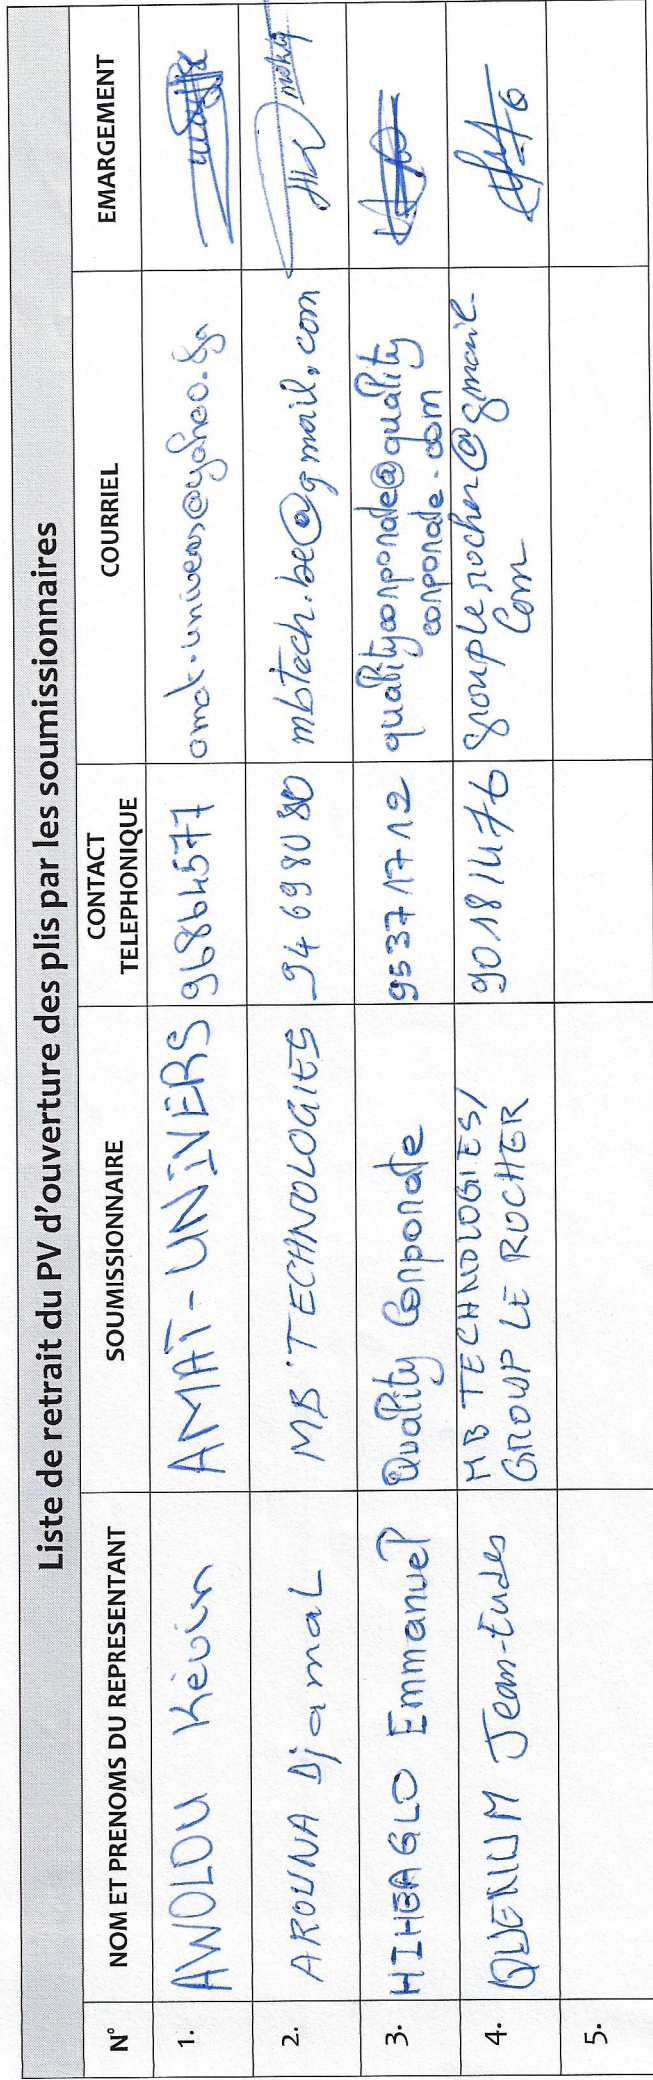 Liste de retrait du PV d'ouverture des plis par les soumissionnaires
N° NOM ET PRENOMS DU REPRESENTANT SOUMISSIONNAIRE CONTACT TELEPHONIQUE COURRIEL EMARGEMENT
1. AWOLOU Kévin AMAT-UNIVERS 96864577 amat-univers@yahoo.
2. AROUNA Djamal MB TECHNOLOGIES 94698080 mbtech.be@gmail.com
3. HIHEAGLO Emmanuel Quality Corporate 95371712 qualitycorporate@quality
corporate.com
4. QUENUM Jean-Eudes MB TECHNOLOGIES/ 90181476 grouplerocher@gmail.
GROUP LE ROCHER com
5.